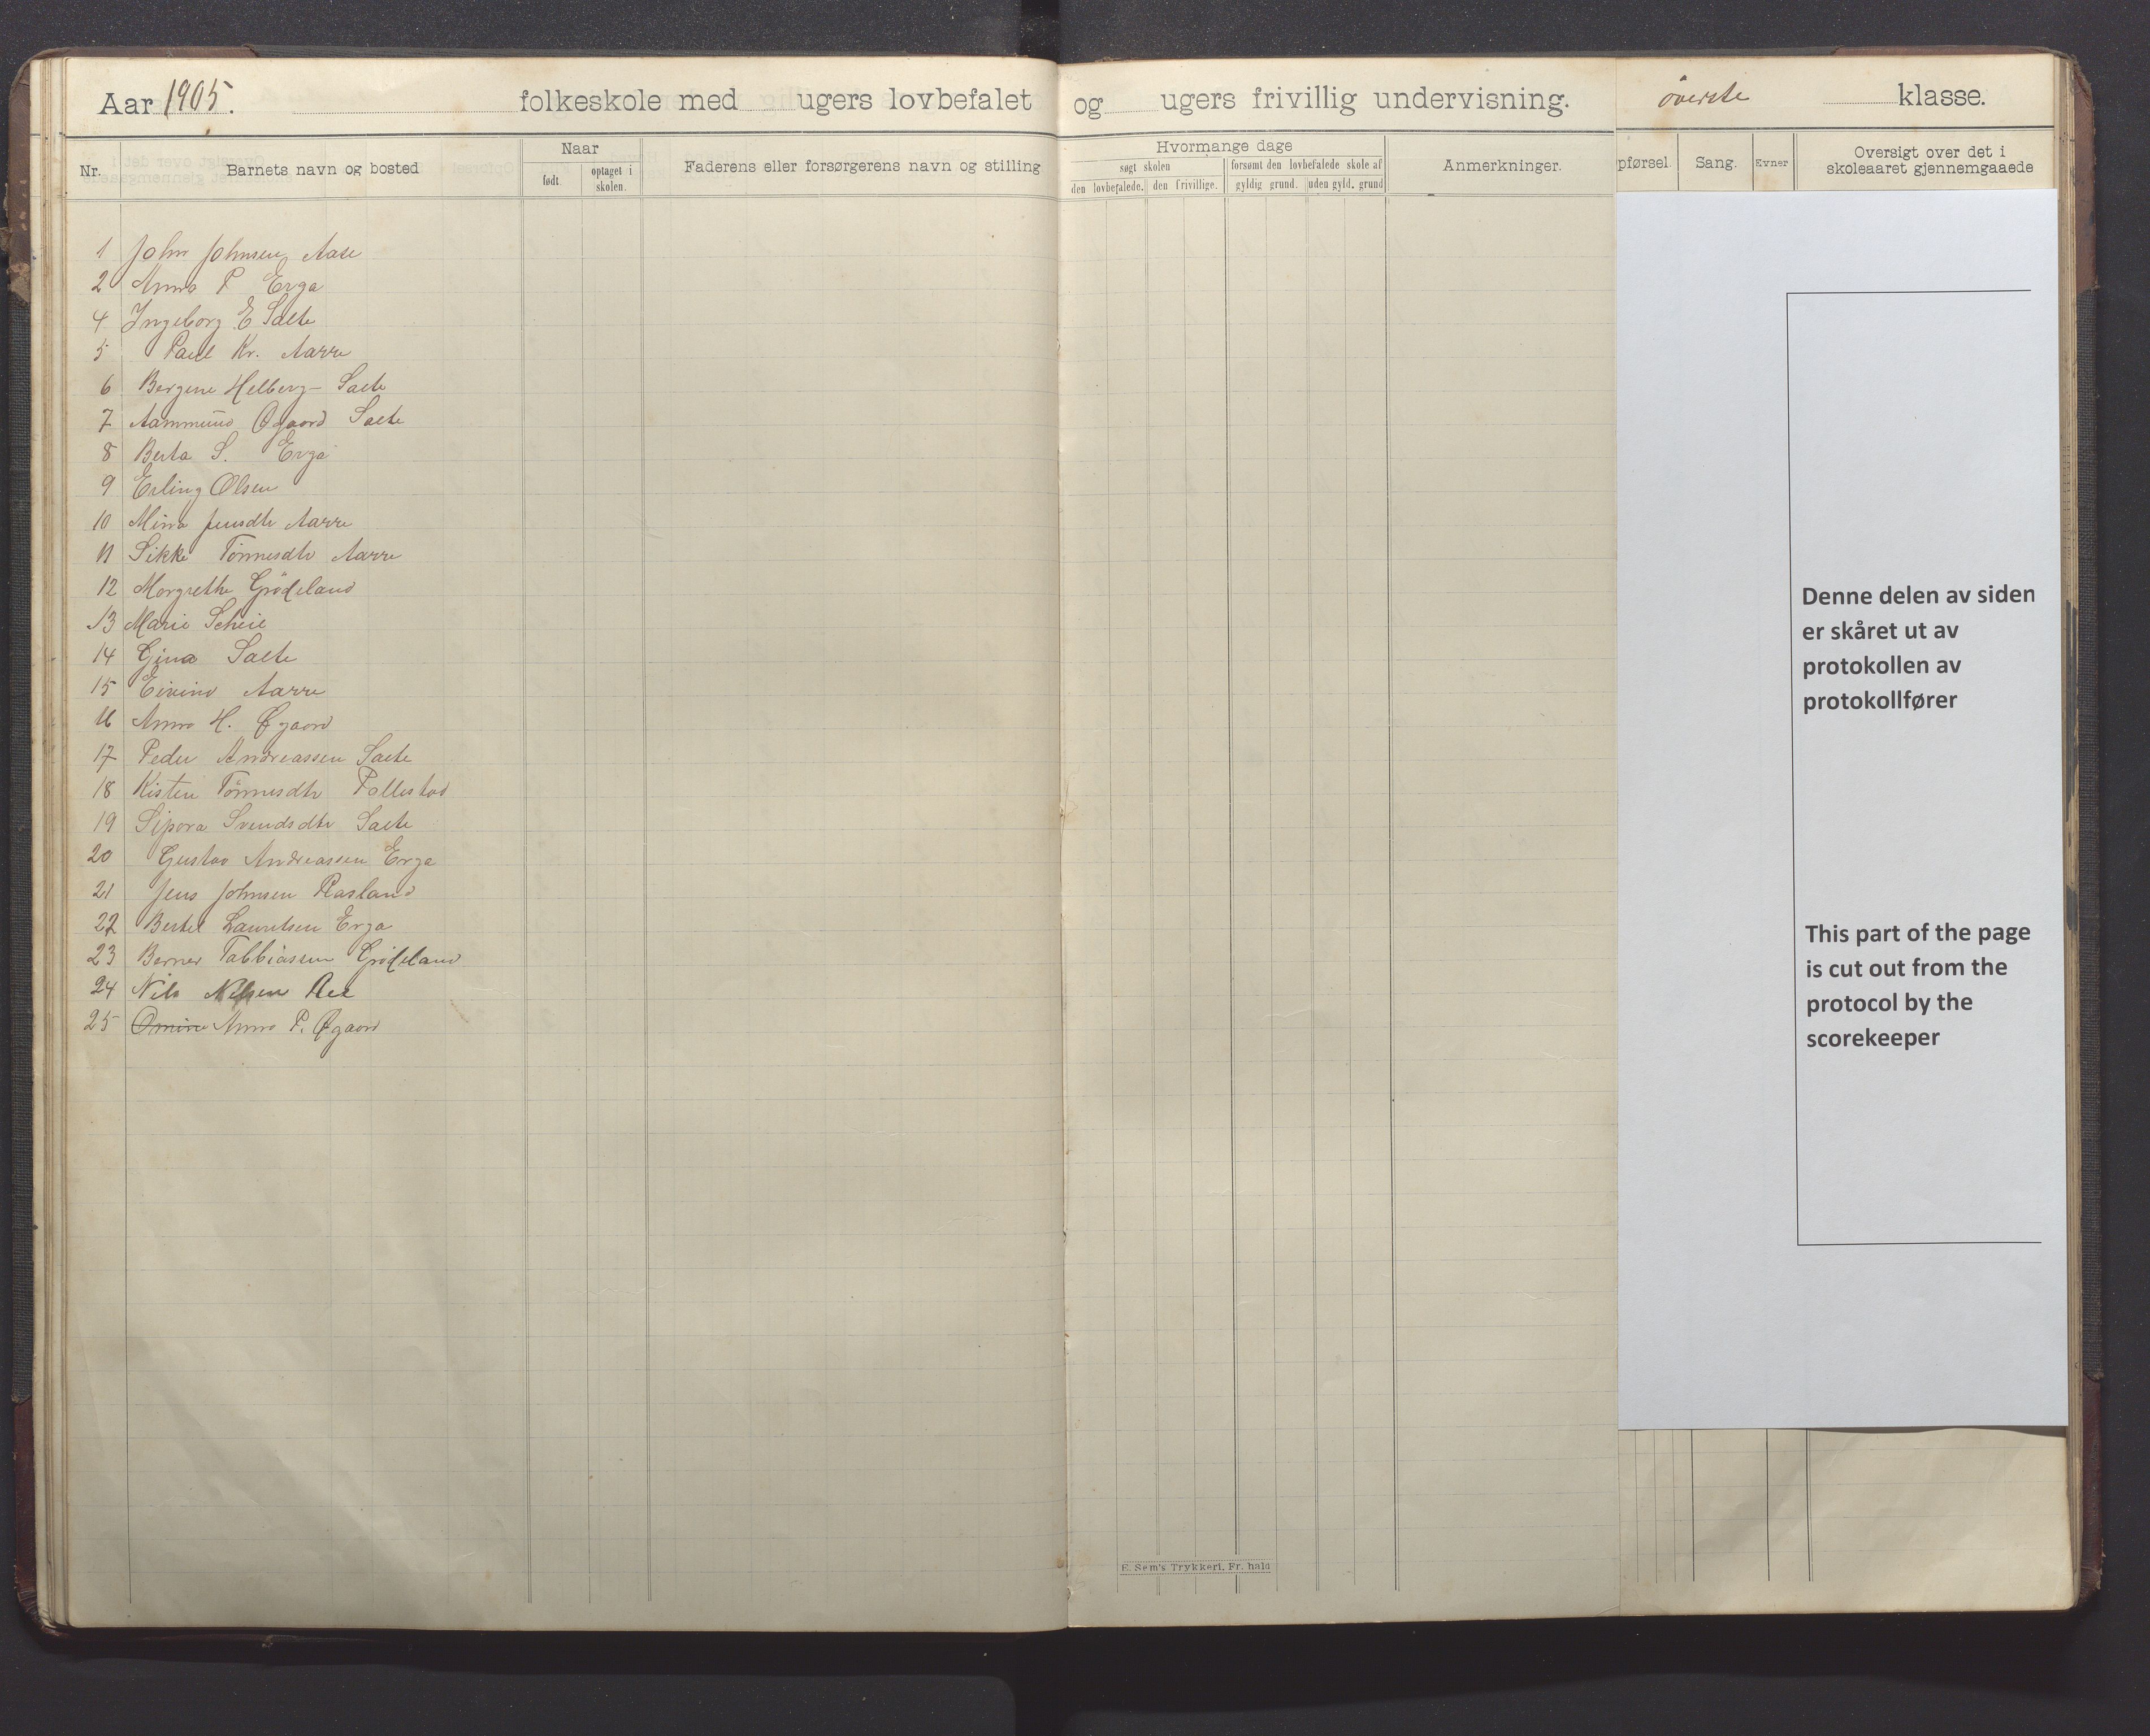 Aar 1905. folkeskole med ugers lovbefalet og ugers frivillig undervisning. överste klasse.
Nr. Barnets navn og bosted Naar født. optaget i skolen. Faderens eller forsørgerens navn og stilling
Hvormange dage søgt skolen den lovbefalede. den frivillige. forsømt den lovbefalede skole af gyldig grund. uden gyld. grund Anmerkninger.
pførsel. Sang. Evner Oversigt over det i skoleaaret gjennemgaaede
1 John Johnsen Aase
2 Anna P Erga
4 Ingeborg E Salte
5 Paul Kr. Aarre
6 Bergine Helberg - Salte
7 Aammund Øgaard Salte
8 Berta S. Erga
9 Erling Olsen
10 Mina Jensdtr Aarre
11 Sikke Tönnesdtr Aarre
12 Margrethe Grödeland
13 Marie Scheie
14 Gina Salte
15 Eivind Aarre
16 Anna H. Øgaard
17 Peder Andreassen Salte
18 Kisten Tönnesdtr Pollestad
19 Sipora Svendsdtr Salte
20 Gustav Andreassen Erga
21 Jens Johnsen Rasland
22 Bertel Lauritsen Erga
23 Berner Tabbiassen Grödeland
24 Nils Nilsen Ree
25 Omine Anna P. Øgaard
Denne delen av siden
er skåret ut av
protokollen av
protokollfører
This part of the page
is cut out from the
protocol by the
scorekeeper
E. Sem's Trykkeri, Fr. hald